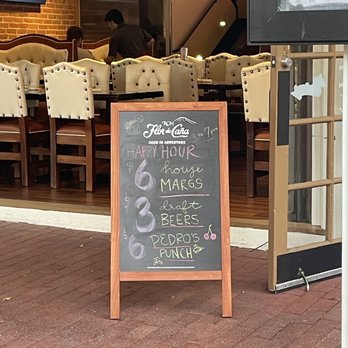 RON
Flor de Caña
AGED IN ADVENTURE
to 7pm
HAPPY HOUR
6 house
MARGS
3 draft
BEERS
6 PEDRO'S
PUNCH